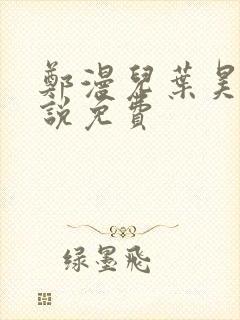 鄭漫兒葉昊
說免費
绿墨飛